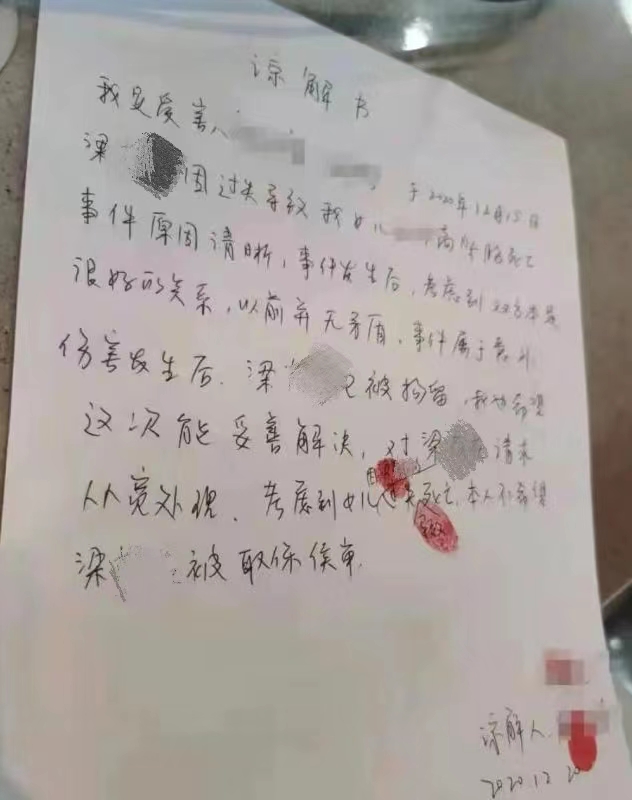 谅解书
我是受害人
于2020年12月15日
梁 因过失导致我女儿 死亡
事件原因清晰，事件发生后，考虑到双方本是
很好的关系，以前并无矛盾，事件属于意外
伤害发生后，梁 已被拘留，我也希望
这次能妥善解决，对梁 请求
从宽处理，考虑到女儿 因 过失 导致 死亡，本人不希望
梁 被取保候审
谅解人
2020.12.20